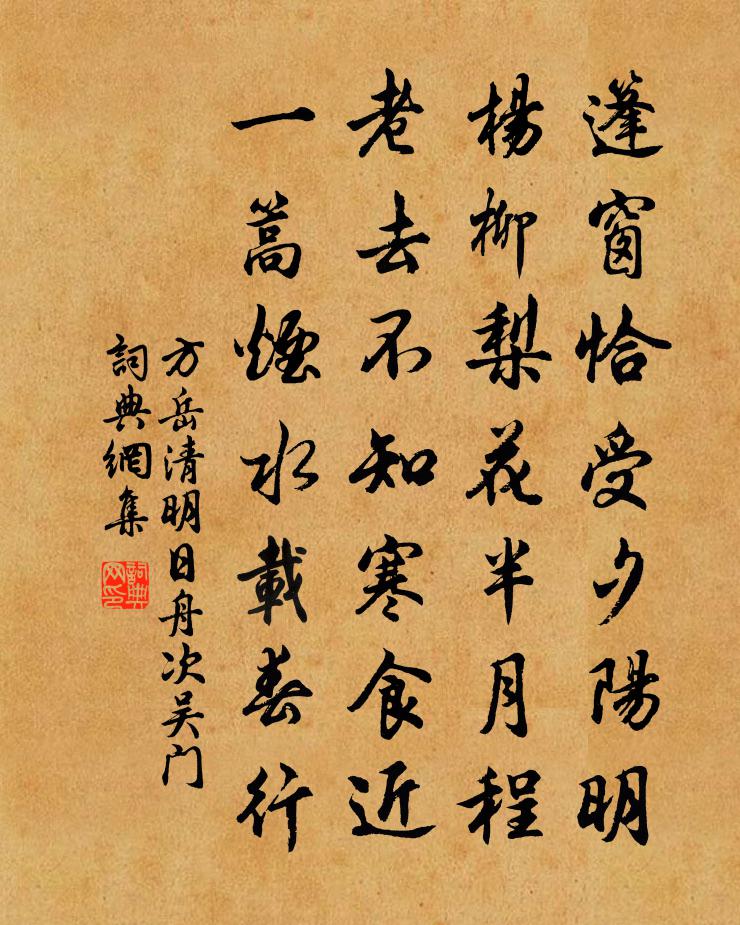 篷窗恰受夕陽明
楊柳梨花半月程
老去不知寒食近
一篙煙水載春行
方岳清明日舟次吴门
詞典網集
詞典网印